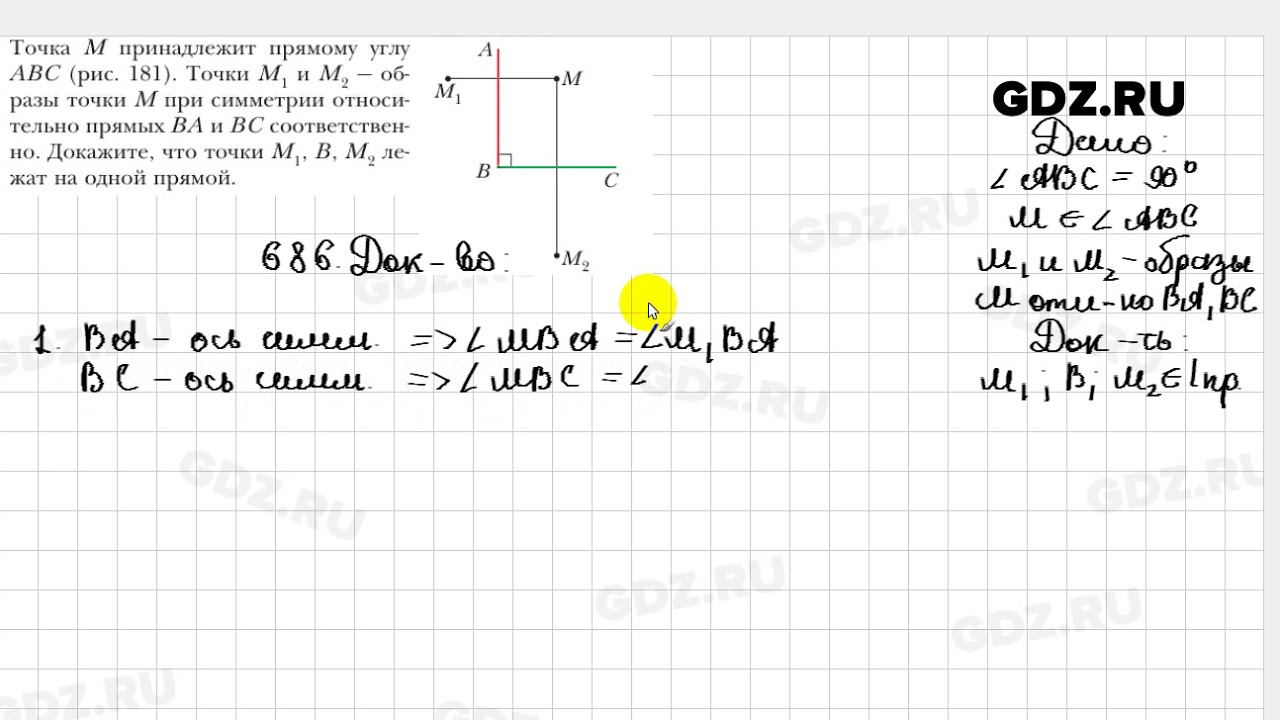 Точка M принадлежит прямому углу
ABC (рис. 181). Точки M₁ и M₂ — об-
разы точки M при симметрии относи-
тельно прямых BA и BC соответствен-
но. Докажите, что точки M₁, B, M₂ ле-
жат на одной прямой.
A
M₁
M
B
C
M₂
GDZ.RU
Дано:
∠ ABC = 90°
M ∈ ∠ ABC
M₁ и M₂ - образы
M отн-но BA, BC
Док-ть:
M₁; B; M₂ ∈ 1 пр.
686. Док-во:
1. BA - ось симм. => ∠ MBA = ∠ M₁BA
BC - ось симм. => ∠ MBC = ∠
GDZ.RU
GDZ.RU
GDZ.RU
GDZ.RU
GDZ.RU
GDZ.RU
GDZ.RU
GDZ.RU
GDZ.RU
GDZ.RU
GDZ.RU